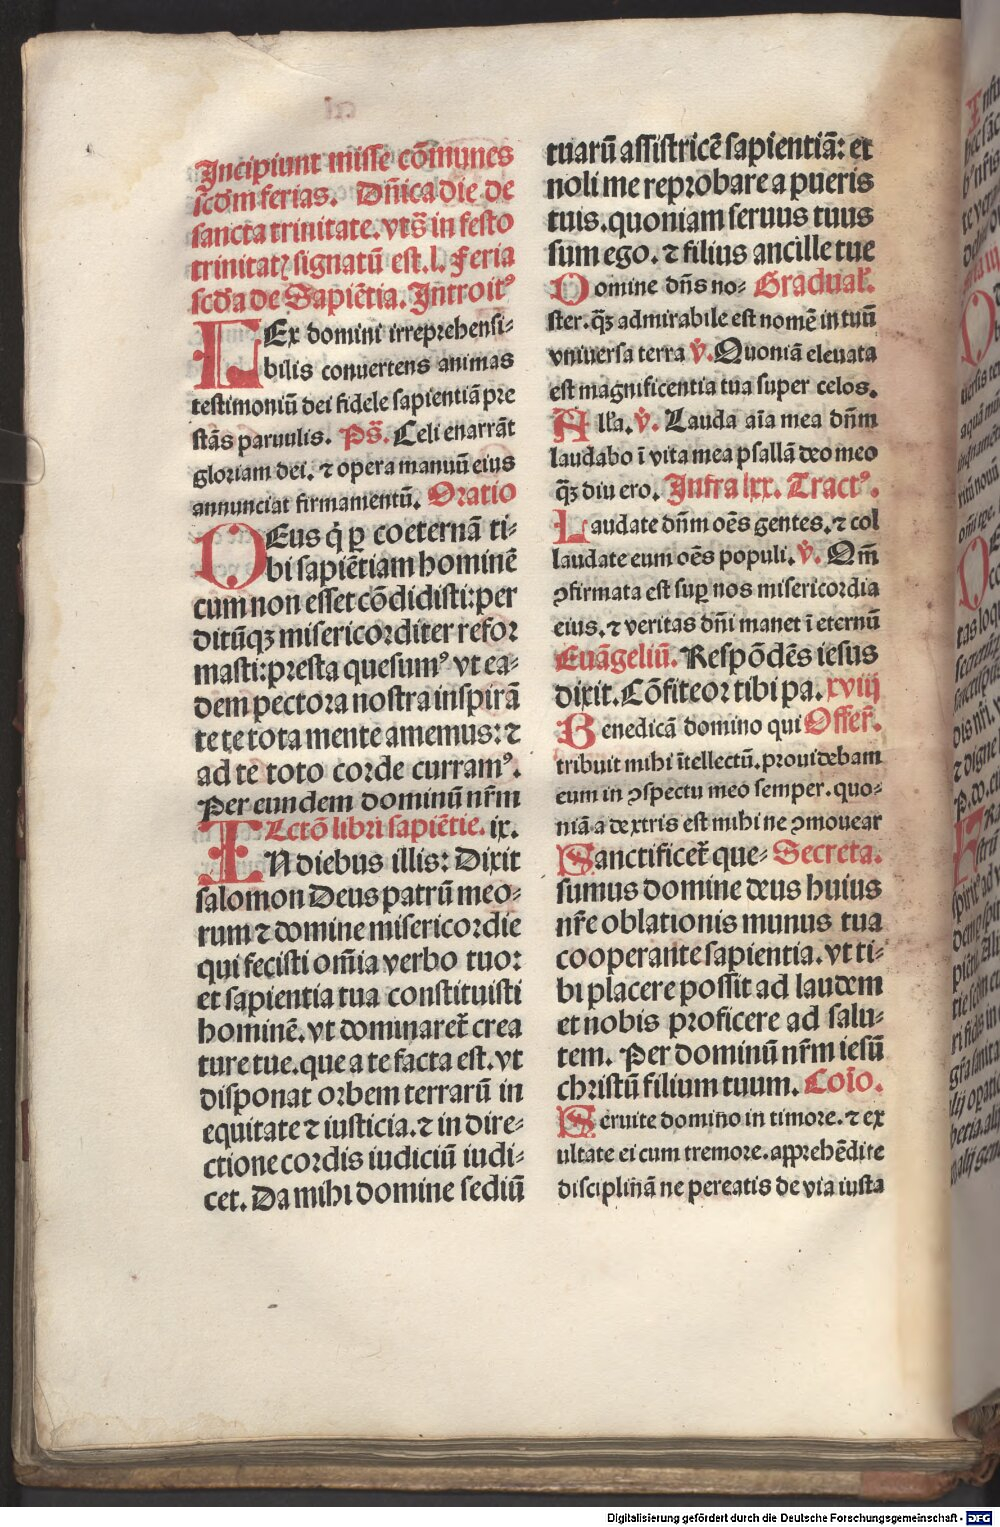 Incipiunt misse cōmunes
scd̄m ferias. Dn̄ica die de
sancta trinitate. vts̄ in festo
trinitatꝝ signatū est. l. Feria
scd̄a de Sapiētia. Introitꝰ
LEx domini irreprehensi-
bilis conuertens animas
testimoniū dei fidele sapientiā pre
stās paruulis. Ps̄. Celi enarrāt
gloriam dei. ⁊ opera manuū eius
annunciat firmamentū. Oratio
DEus q̇ ꝑ coeternā ti-
bi sapiētiam hominē
cum non esset cōdidisti: per
ditūqꝫ misericorditer refor
masti: presta quesumꝰ vt ea-
dem pectora nostra inspirā
te te tota mente amemus: ⁊
ad te toto corde curramꝰ.
Per eundem dominū nr̄m
Lectō libri sapiētie. ix.
IN diebus illis: Dixit
salomon Deus patrū meo-
rum ⁊ domine misericordie
qui fecisti om̄ia verbo tuo:
et sapientia tua constituisti
hominē. vt dominaret̄ crea
ture tue. que a te facta est. vt
disponat orbem terrarū in
equitate ⁊ iusticia. ⁊ in dire-
ctione cordis iudiciū iudi-
cet. Da mihi domine sediū
tuarū assistricē sapientiā: et
noli me reprobare a pueris
tuis. quoniam seruus tuus
sum ego. ⁊ filius ancille tue
Domine dn̄s no- Gradual̄.
ster. qꝫ̄ admirabile est nomē in tuū
vniuersa terra V̇. Quoniā eleuata
est magnificentia tua super celos.
All̄a. V̇. Lauda aīa mea dn̄m
laudabo ī vita mea psallā deo meo
qꝫ̄ diu ero. Infra lxx. Tractꝰ.
Laudate dn̄m oēs gentes. ⁊ col
laudate eum oēs populi. V̇. Qm̄
ꝯfirmata est suꝑ nos misericordia
eius. ⁊ veritas dn̄i manet ī eternū
Euāgeliū. Respōdēs iesus
dixit. Cōfiteor tibi pa. xviij
Benedicā domino qui Offer̄.
tribuit mihi ītellectū. prouidebam
eum in ꝯspectu meo semper. quo-
niā a dextris est mihi ne ꝯmouear
Sanctificet̄ que- Secreta.
sumus domine deus huius
nr̄e oblationis munus tua
cooperante sapientia. vt ti-
bi placere possit ad laudem
et nobis proficere ad salu-
tem. Per dominū nr̄m iesū
christū filium tuum. Coīo.
Seruite domino in timore. ⁊ ex
ultate ei cum tremore. apprehēdite
disciplinā ne pereatis de via iusta
Digitalisierung gefördert durch die Deutsche Forschungsgemeinschaft - DFG